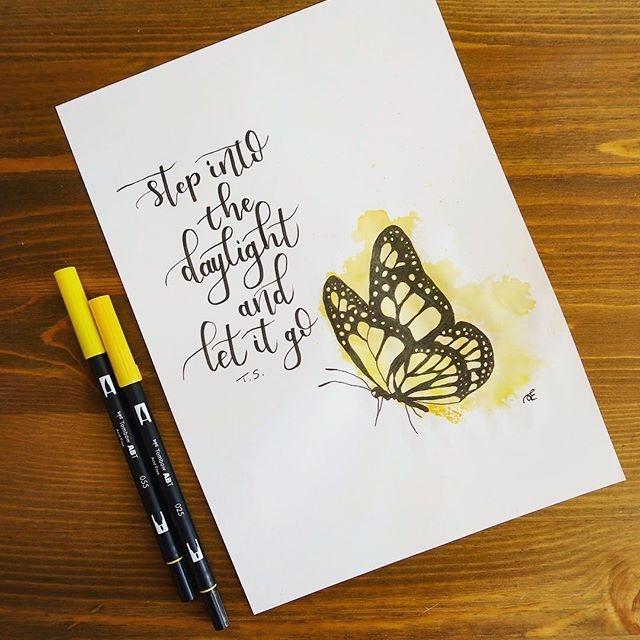 step into
the
daylight
and
let it go
T.S.
Tombow ABT
055
Tombow ABT
025